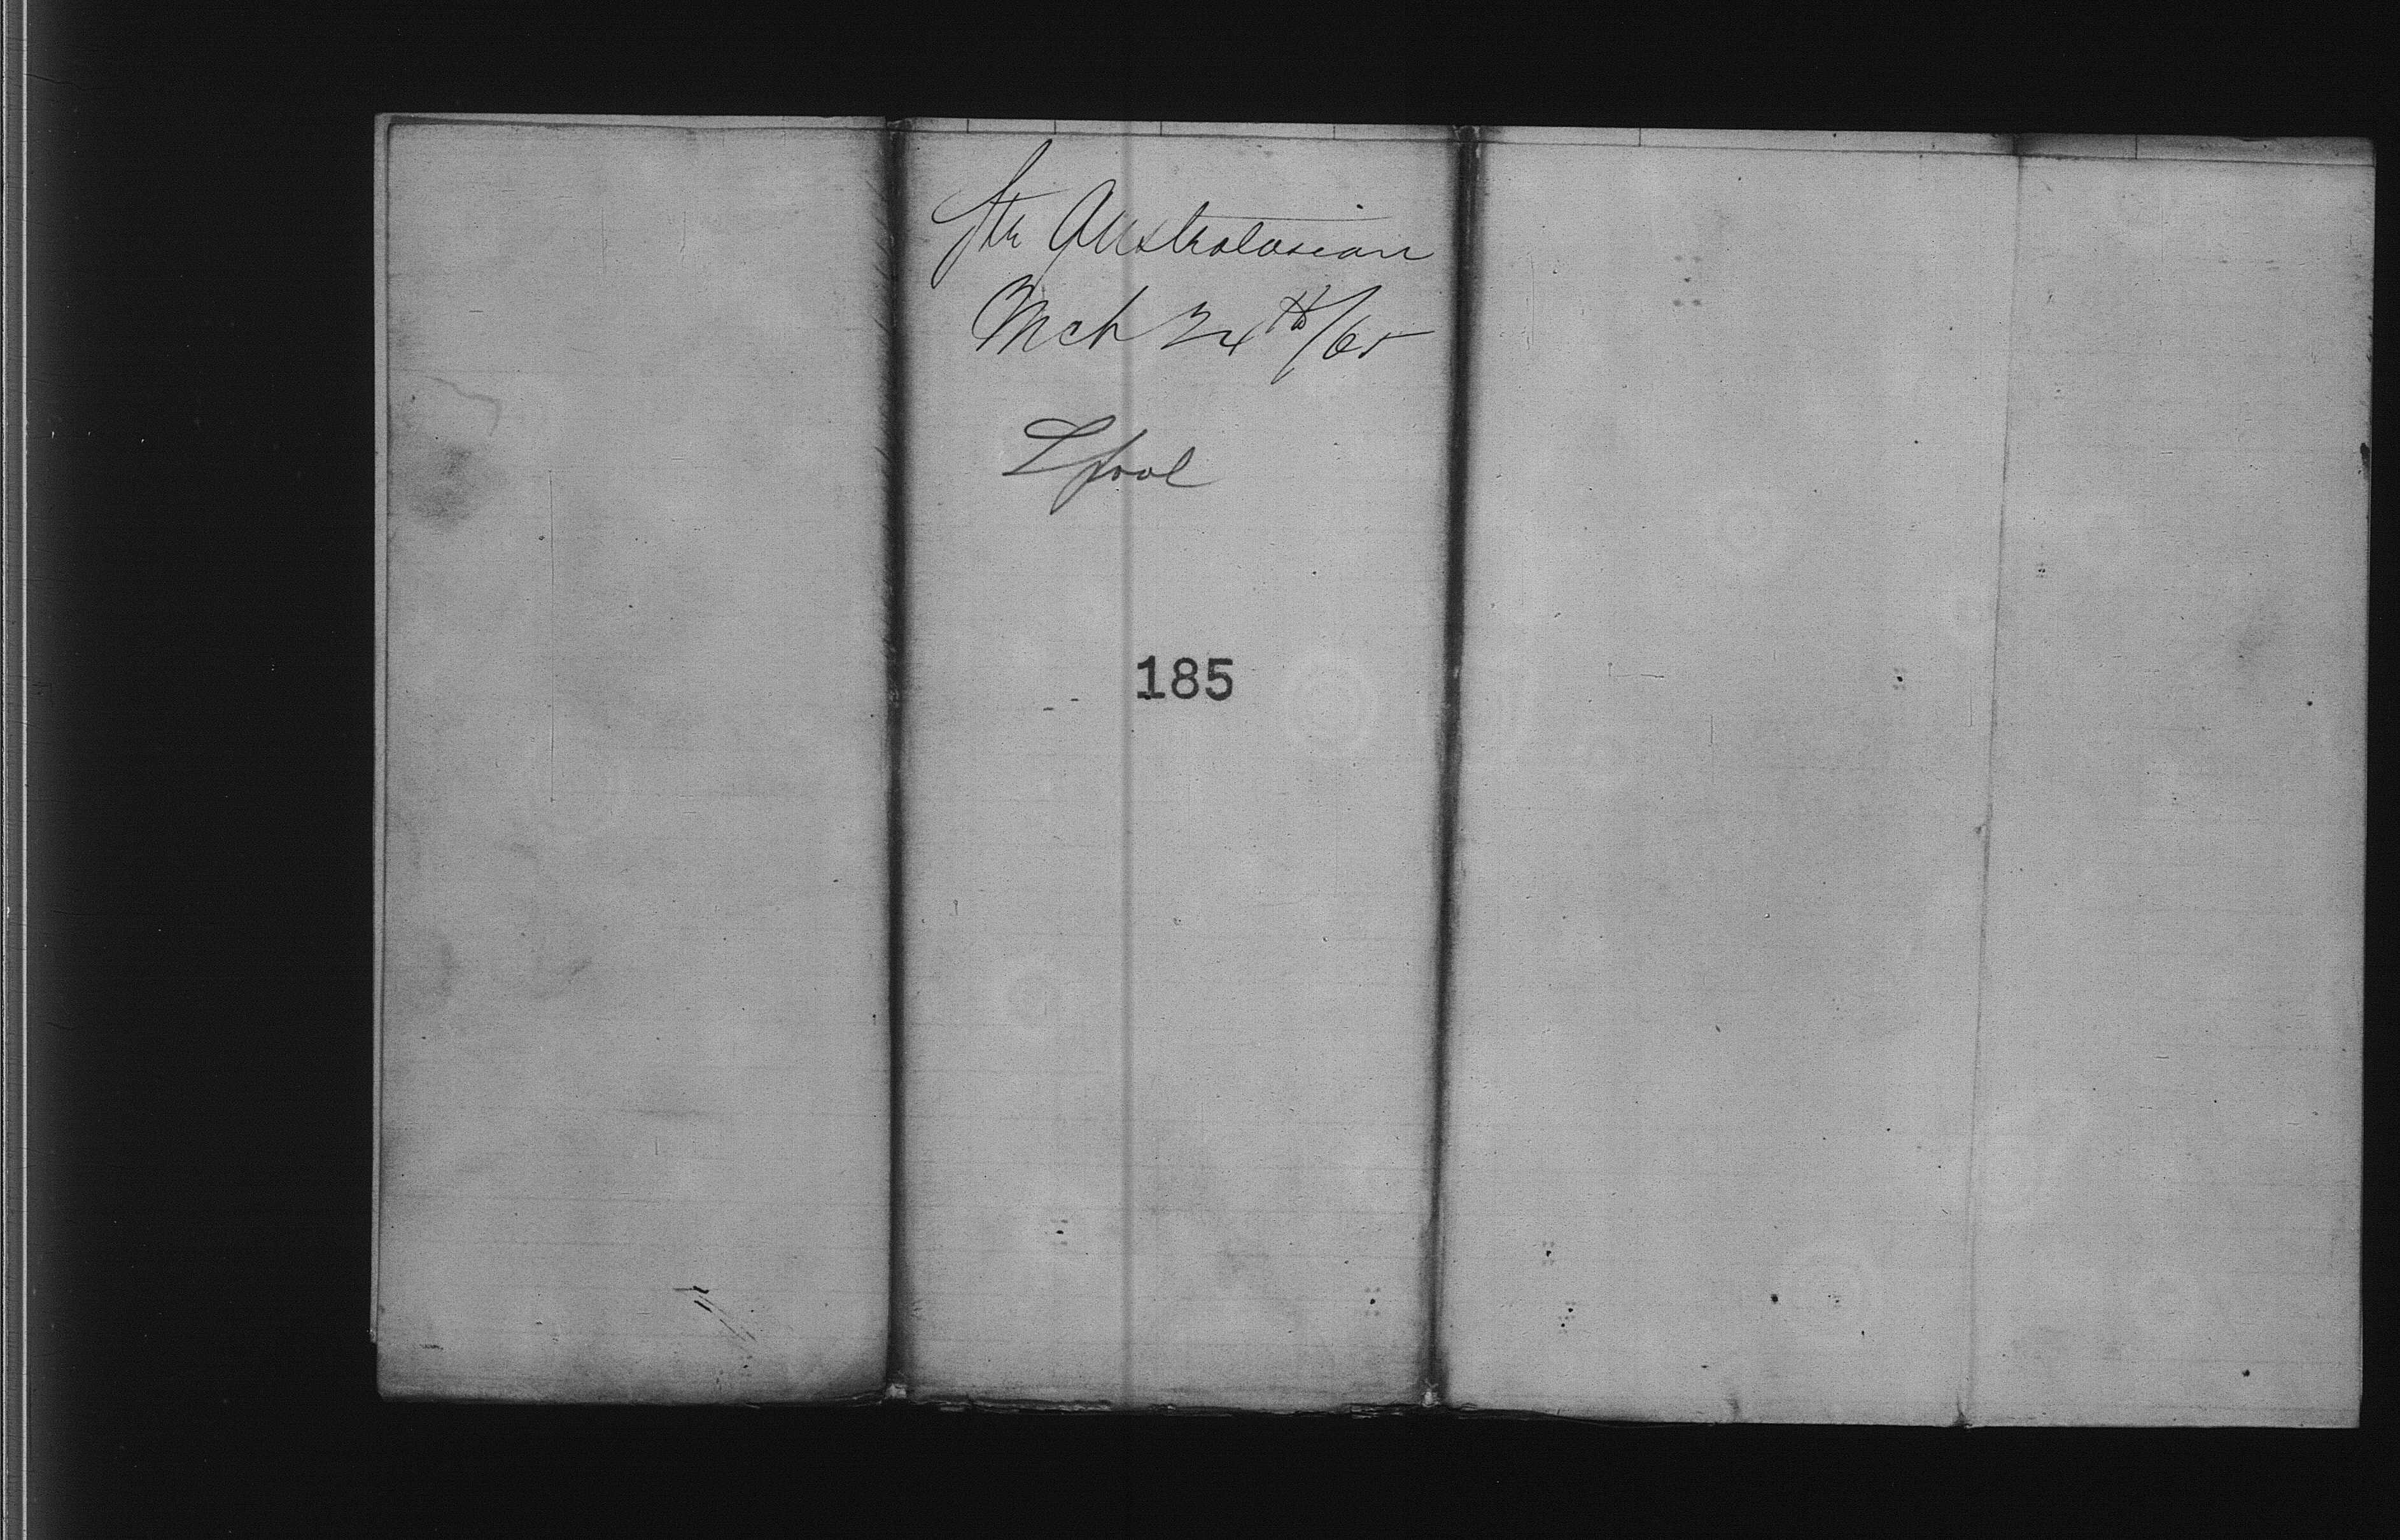 Str Australasian
Mch 24th/65
Lpool
185